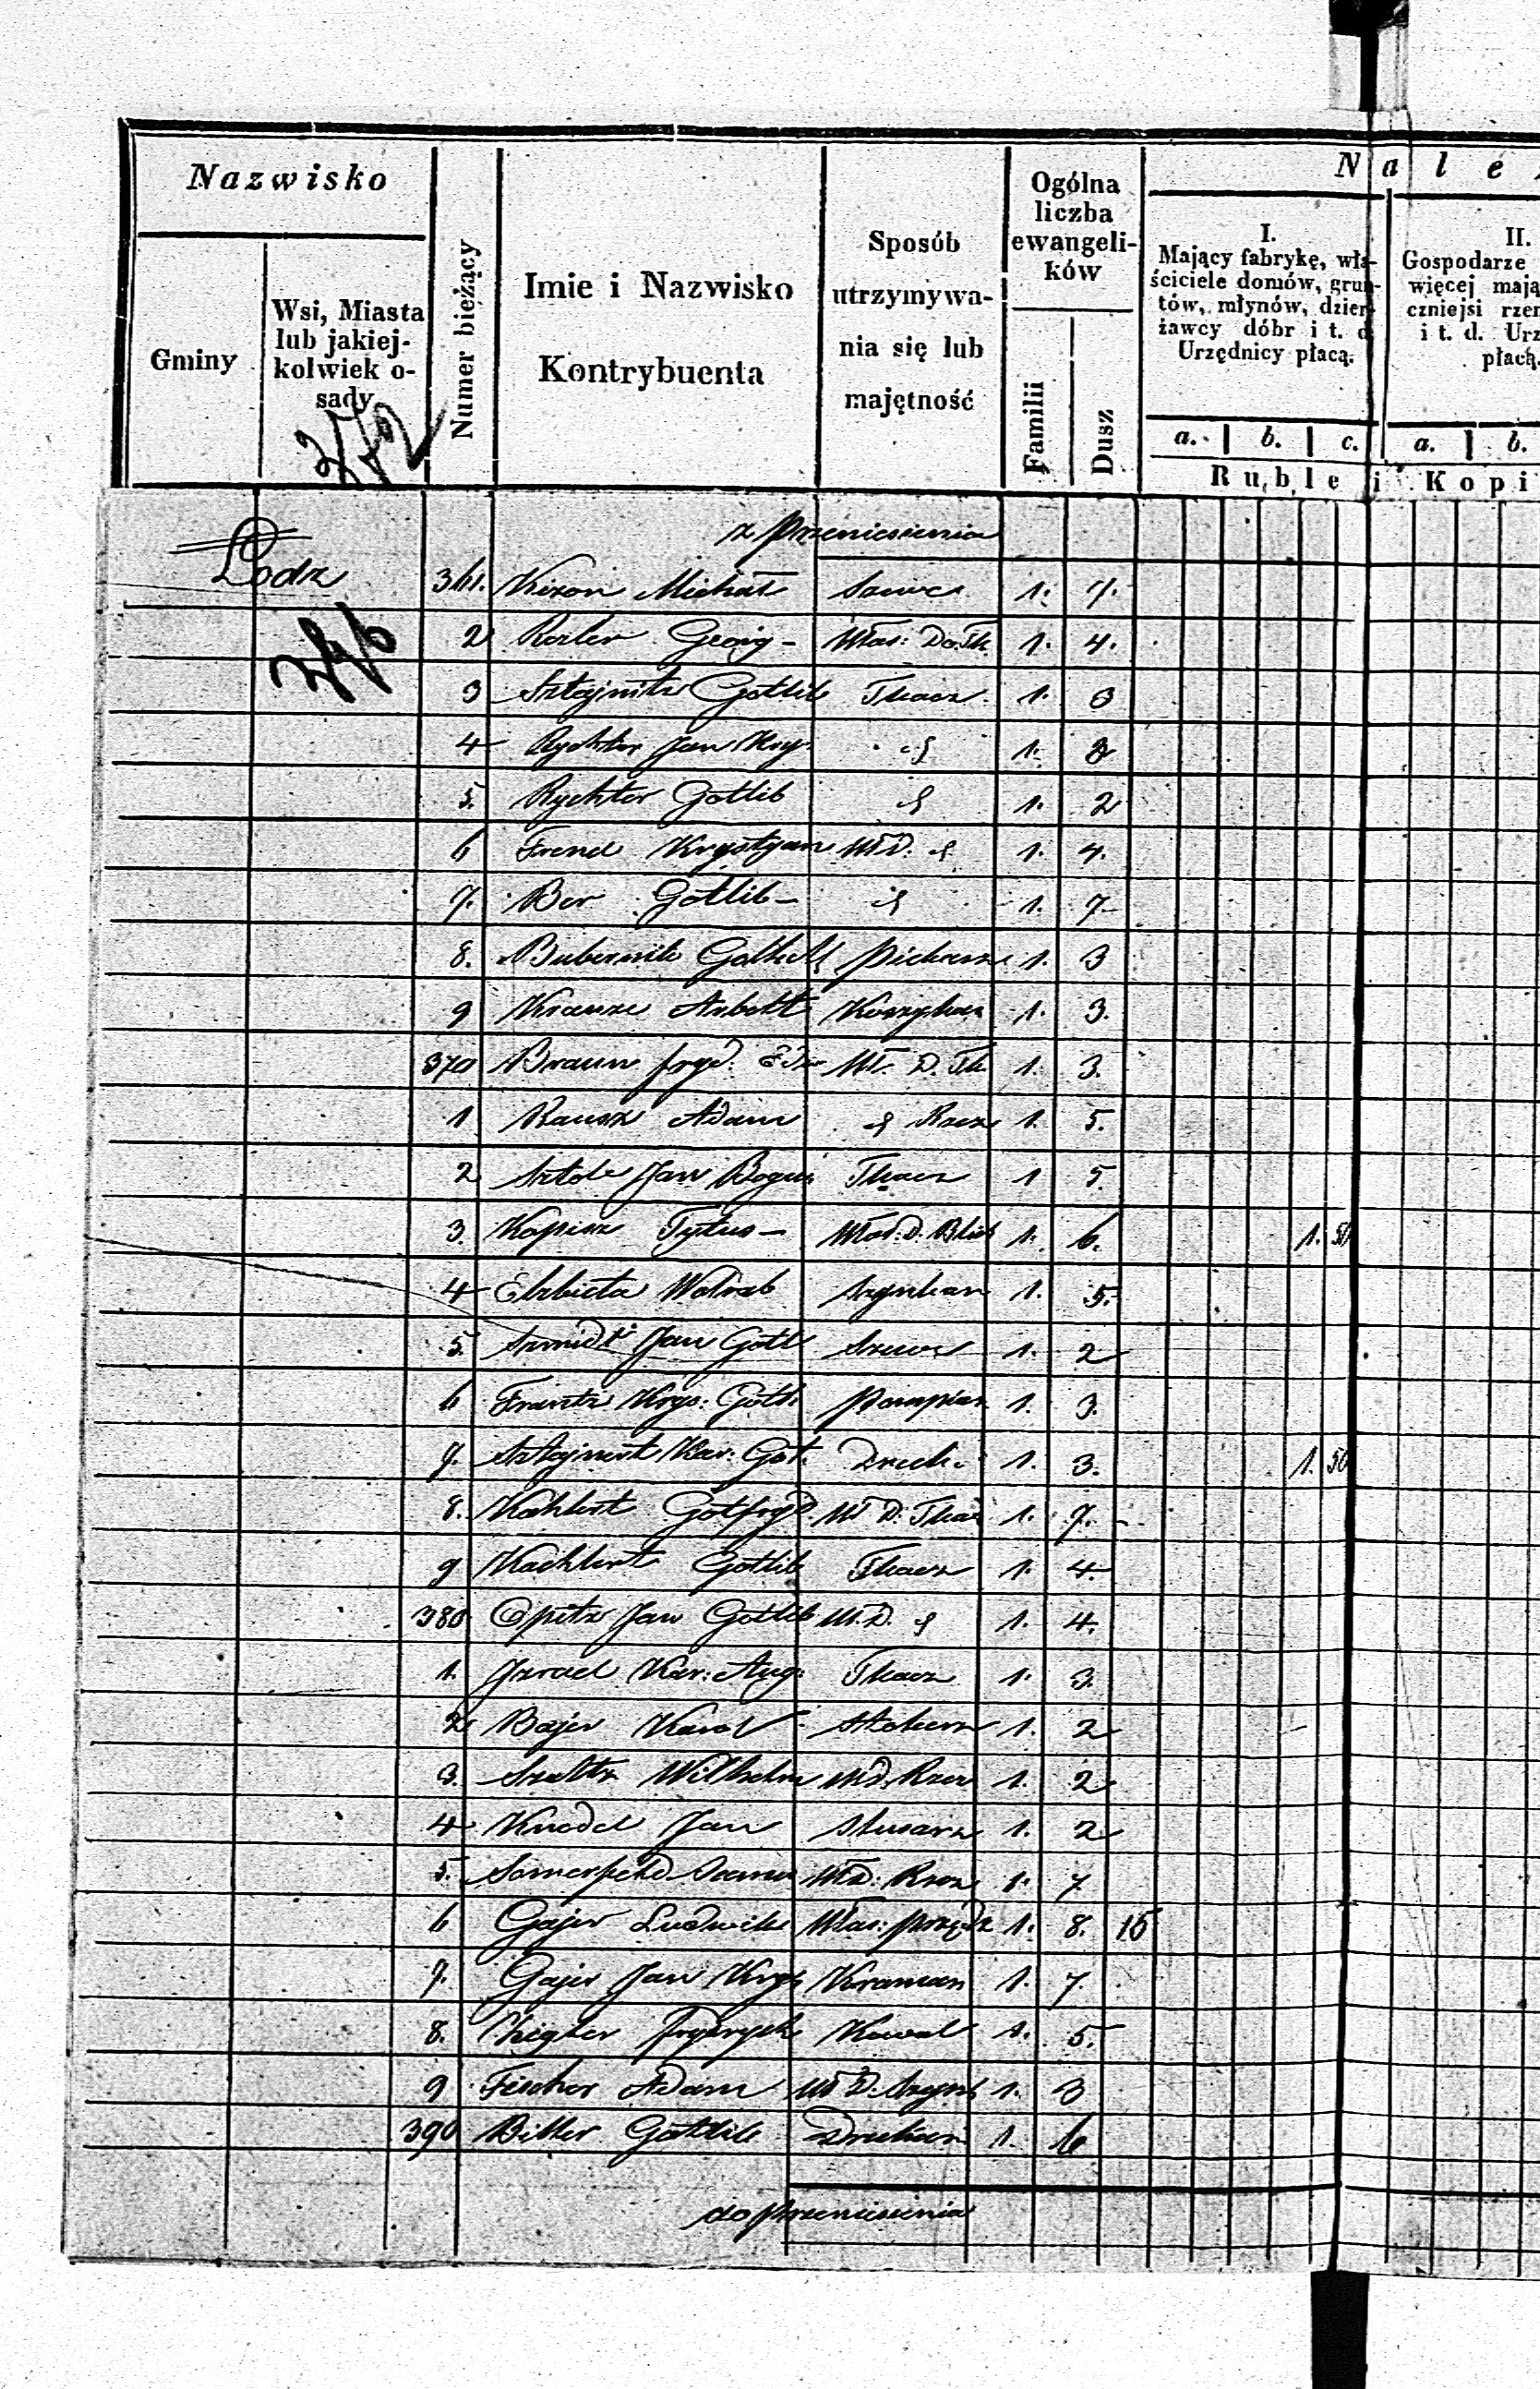 Nazwisko
Gminy
Wsi, Miasta
lub jakiej-
kolwiek o-
sady
Numer bieżący
Imie i Nazwisko
Kontrybuenta
Sposób
utrzymywa-
nia się lub
majętność
Ogólna
liczba
ewangeli-
ków
Familii
Dusz
N a l e
I.
Mający fabrykę, wła-
ściciele domów, grun-
tów, młynów, dzier-
żawcy dóbr i t. d.
Urzędnicy płacą.
II.
Gospodarze
więcej mają
czniejsi rzem
i t. d. Urz
płacą.
a. b. c. a. b.
Ruble i Kopi
z przeniesienia
Łodz
361. Kixon Michał 1. 7.
2 Rezler Georg - Właś: Do. Tk. 1. 4.
3 Sztajnitz Gotlib Tkacz 1. 3
4 Rychter Jan Kry. 1.
5. Rychter Gotlib 1. 2
6 Frend Krystyan Wł D. 1. 4.
7. Ber Gotlib - 1. 7
8. Gotlieb Piekarz 1. 3
9 Krauze 1. 3.
370 Braun fryd. Wł. D. Tk 1. 3.
1 Rausz Adam 1. 5.
2 Jan Bogu Tkacz 1 5.
3. Kopisz Tytus - Właś: D. Blich 1. 6. 1. 50
4 Elzbieta Wolrab Szynkar 1. 5.
5. Szmidt Jan Gotl Szewc 1. 2
6 Frantz Krys: Gotl. 1. 3.
7. Sztajnert Kar: Got. Druk. 1. 3. 1. 50
8. Kahlert Gotfryd Wł D: Tkac 1. 7.
9 Kachlert Gotlib Tkacz 1. 4.
380 Opitz Jan Gotlib Wł. D. 1. 4.
1. Jzrael Kar: Aug: Tkacz 1. 3.
2 Bajer Karol Stolarz 1. 2
3. Szultz Wilhelm Wł D. Rzez 1. 2
4 Knedel Jan Slusarz 1. 2
5. Somerfeld Wł D: Rzez 1. 7
6 Gajer Ludwik Właś: przędz 1. 8. 15
7. Gajer Jan Krys Kramarz 1. 7.
8. Frydrych Kowal 1. 5.
9 Fischer Adam Wł D. Szynk 1. 3
390 Bitler Gottlib Drukarz 1. 6
do przeniesienia